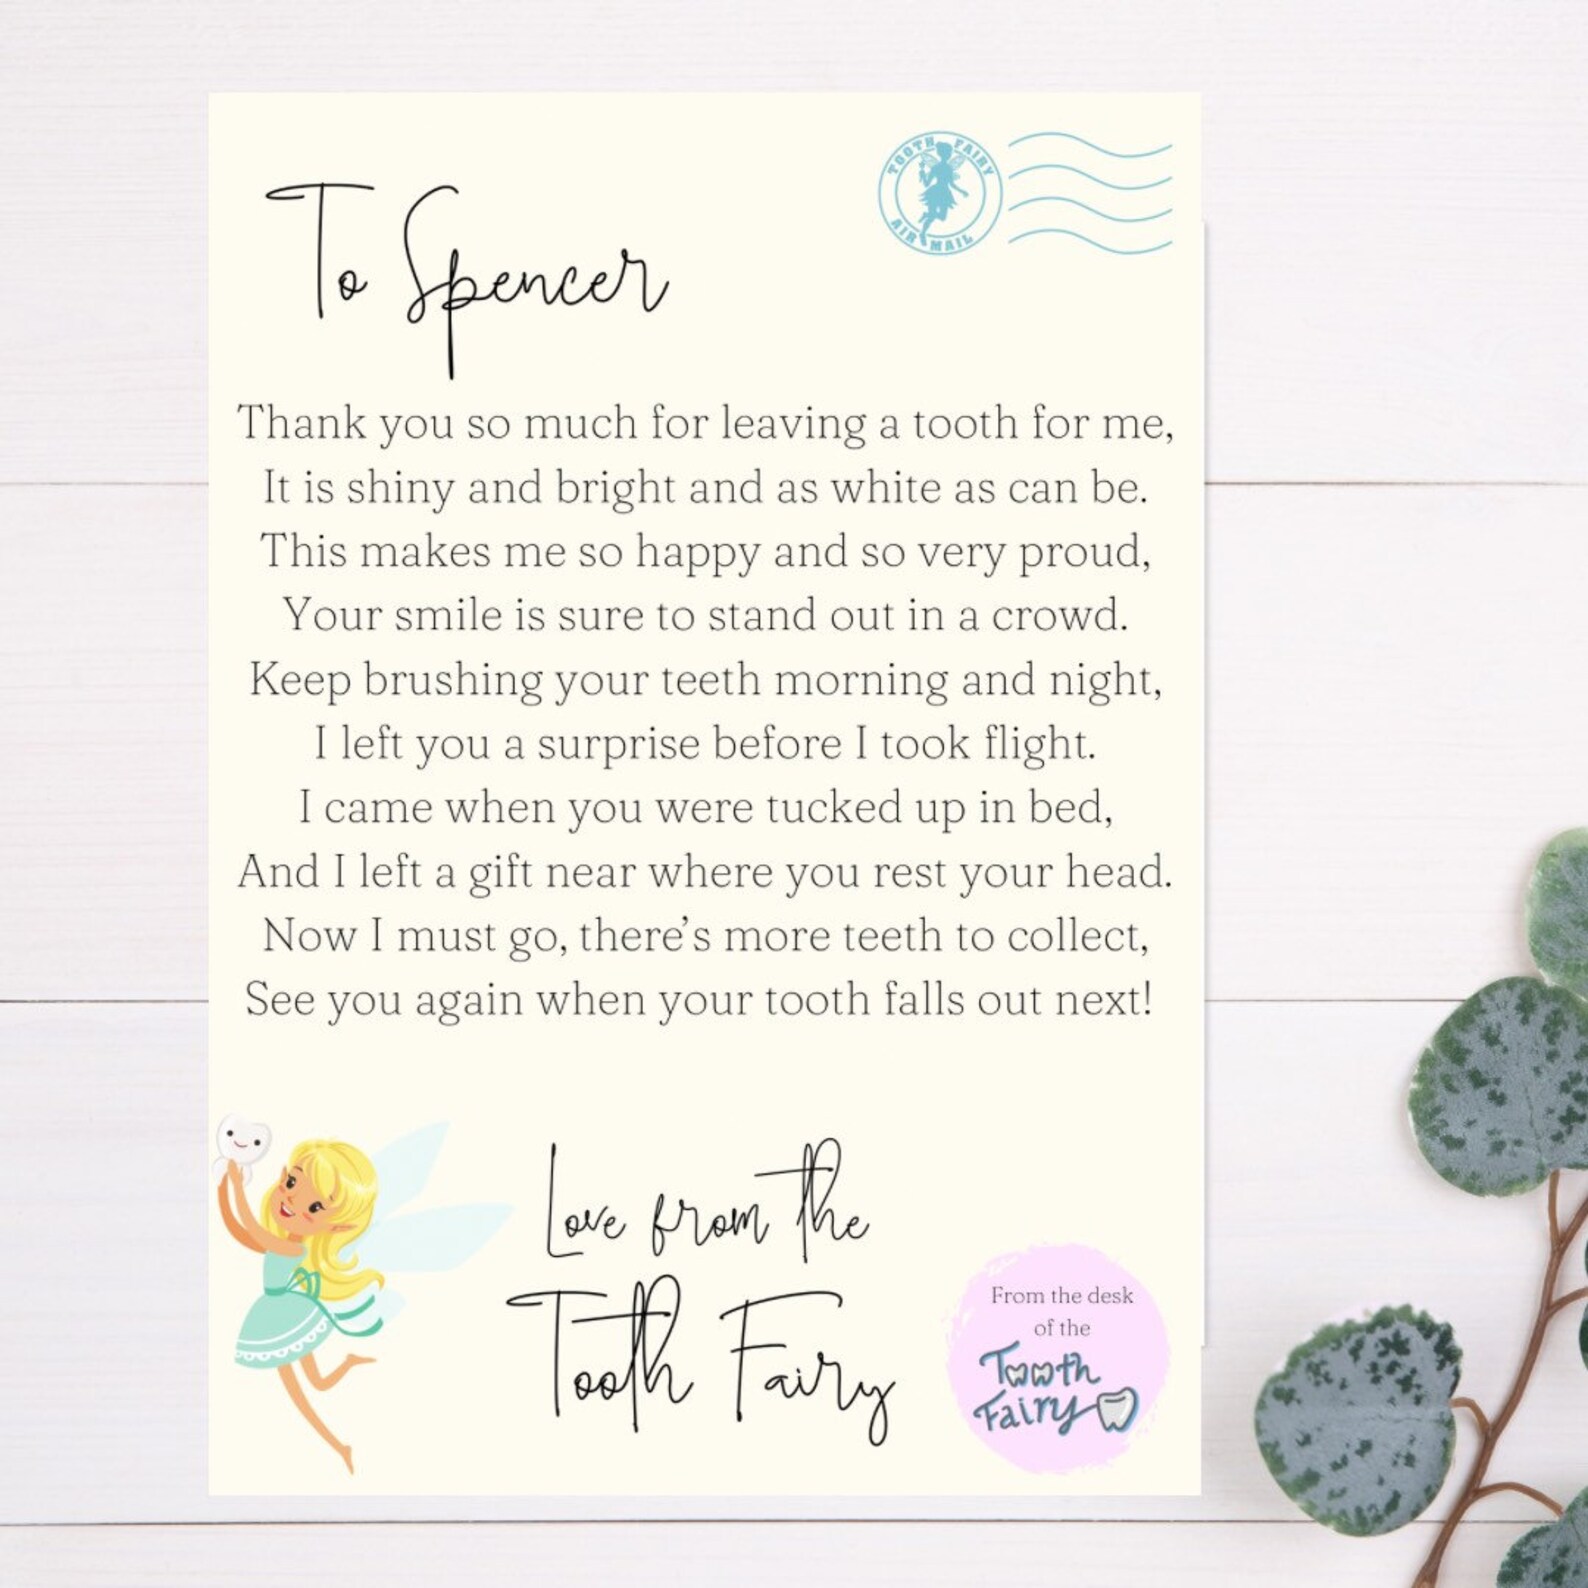 TOOTH FAIRY
AIR MAIL
To Spencer
Thank you so much for leaving a tooth for me,
It is shiny and bright and as white as can be.
This makes me so happy and so very proud,
Your smile is sure to stand out in a crowd.
Keep brushing your teeth morning and night,
I left you a surprise before I took flight.
I came when you were tucked up in bed,
And I left a gift near where you rest your head.
Now I must go, there’s more teeth to collect,
See you again when your tooth falls out next!
Love from the
Tooth Fairy
From the desk
of the
Tooth
Fairy